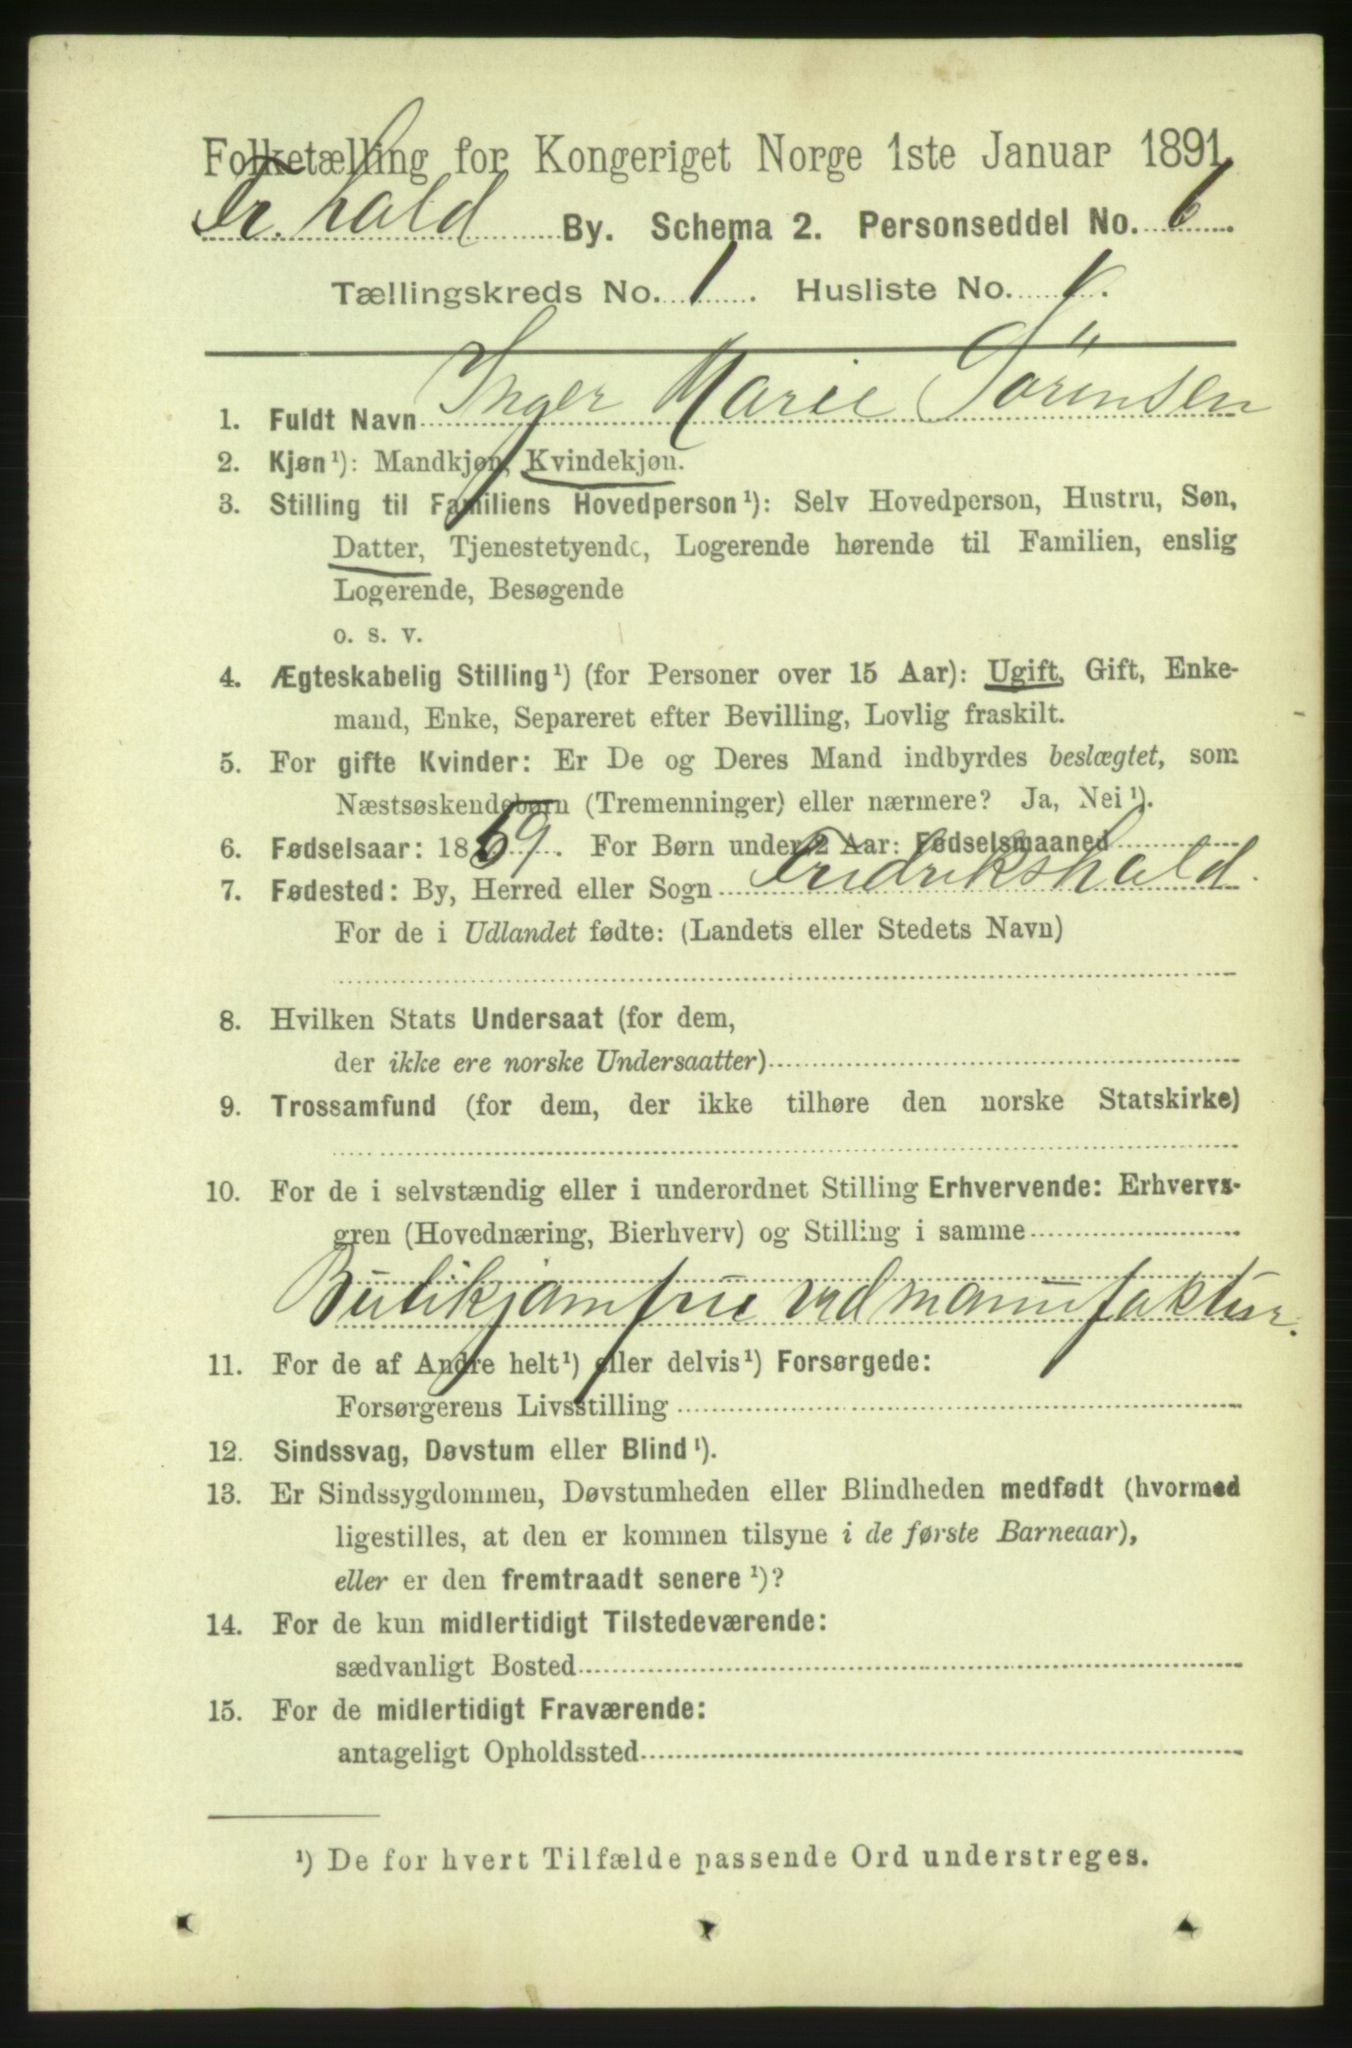 Folketælling for Kongeriget Norge 1ste Januar 1891.
Fr.hald By. Schema 2. Personseddel No. 6.
Tællingskreds No. 1. Husliste No. 1.
1. Fuldt Navn Inger Marie Sörensen
2. Kjøn¹): Mandkjøn, Kvindekjøn.
3. Stilling til Familiens Hovedperson¹): Selv Hovedperson, Hustru, Søn,
Datter, Tjenestetyende, Logerende hørende til Familien, enslig
Logerende, Besøgende
o. s. v.
4. Ægteskabelig Stilling¹) (for Personer over 15 Aar): Ugift, Gift, Enke-
mand, Enke, Separeret efter Bevilling, Lovlig fraskilt.
5. For gifte Kvinder: Er De og Deres Mand indbyrdes beslægtet, som
Næstsøskendebørn (Tremenninger) eller nærmere? Ja, Nei¹).
6. Fødselsaar: 1859. For Børn under 2 Aar: Fødselsmaaned
7. Fødested: By, Herred eller Sogn Fredrikshald.
For de i Udlandet fødte: (Landets eller Stedets Navn)
8. Hvilken Stats Undersaat (for dem,
der ikke ere norske Undersaatter)
9. Trossamfund (for dem, der ikke tilhøre den norske Statskirke)
10. For de i selvstændig eller i underordnet Stilling Erhvervende: Erhvervs-
gren (Hovednæring, Bierhverv) og Stilling i samme
Butikjomfrue ved manufaktur.
11. For de af Andre helt¹) eller delvis¹) Forsørgede:
Forsørgerens Livsstilling
12. Sindssvag, Døvstum eller Blind¹).
13. Er Sindssygdommen, Døvstumheden eller Blindheden medfødt (hvormed
ligestilles, at den er kommen tilsyne i de første Barneaar),
eller er den fremtraadt senere¹)?
14. For de kun midlertidigt Tilstedeværende:
sædvanligt Bosted
15. For de midlertidigt Fraværende:
antageligt Opholdssted
¹) De for hvert Tilfælde passende Ord understreges.